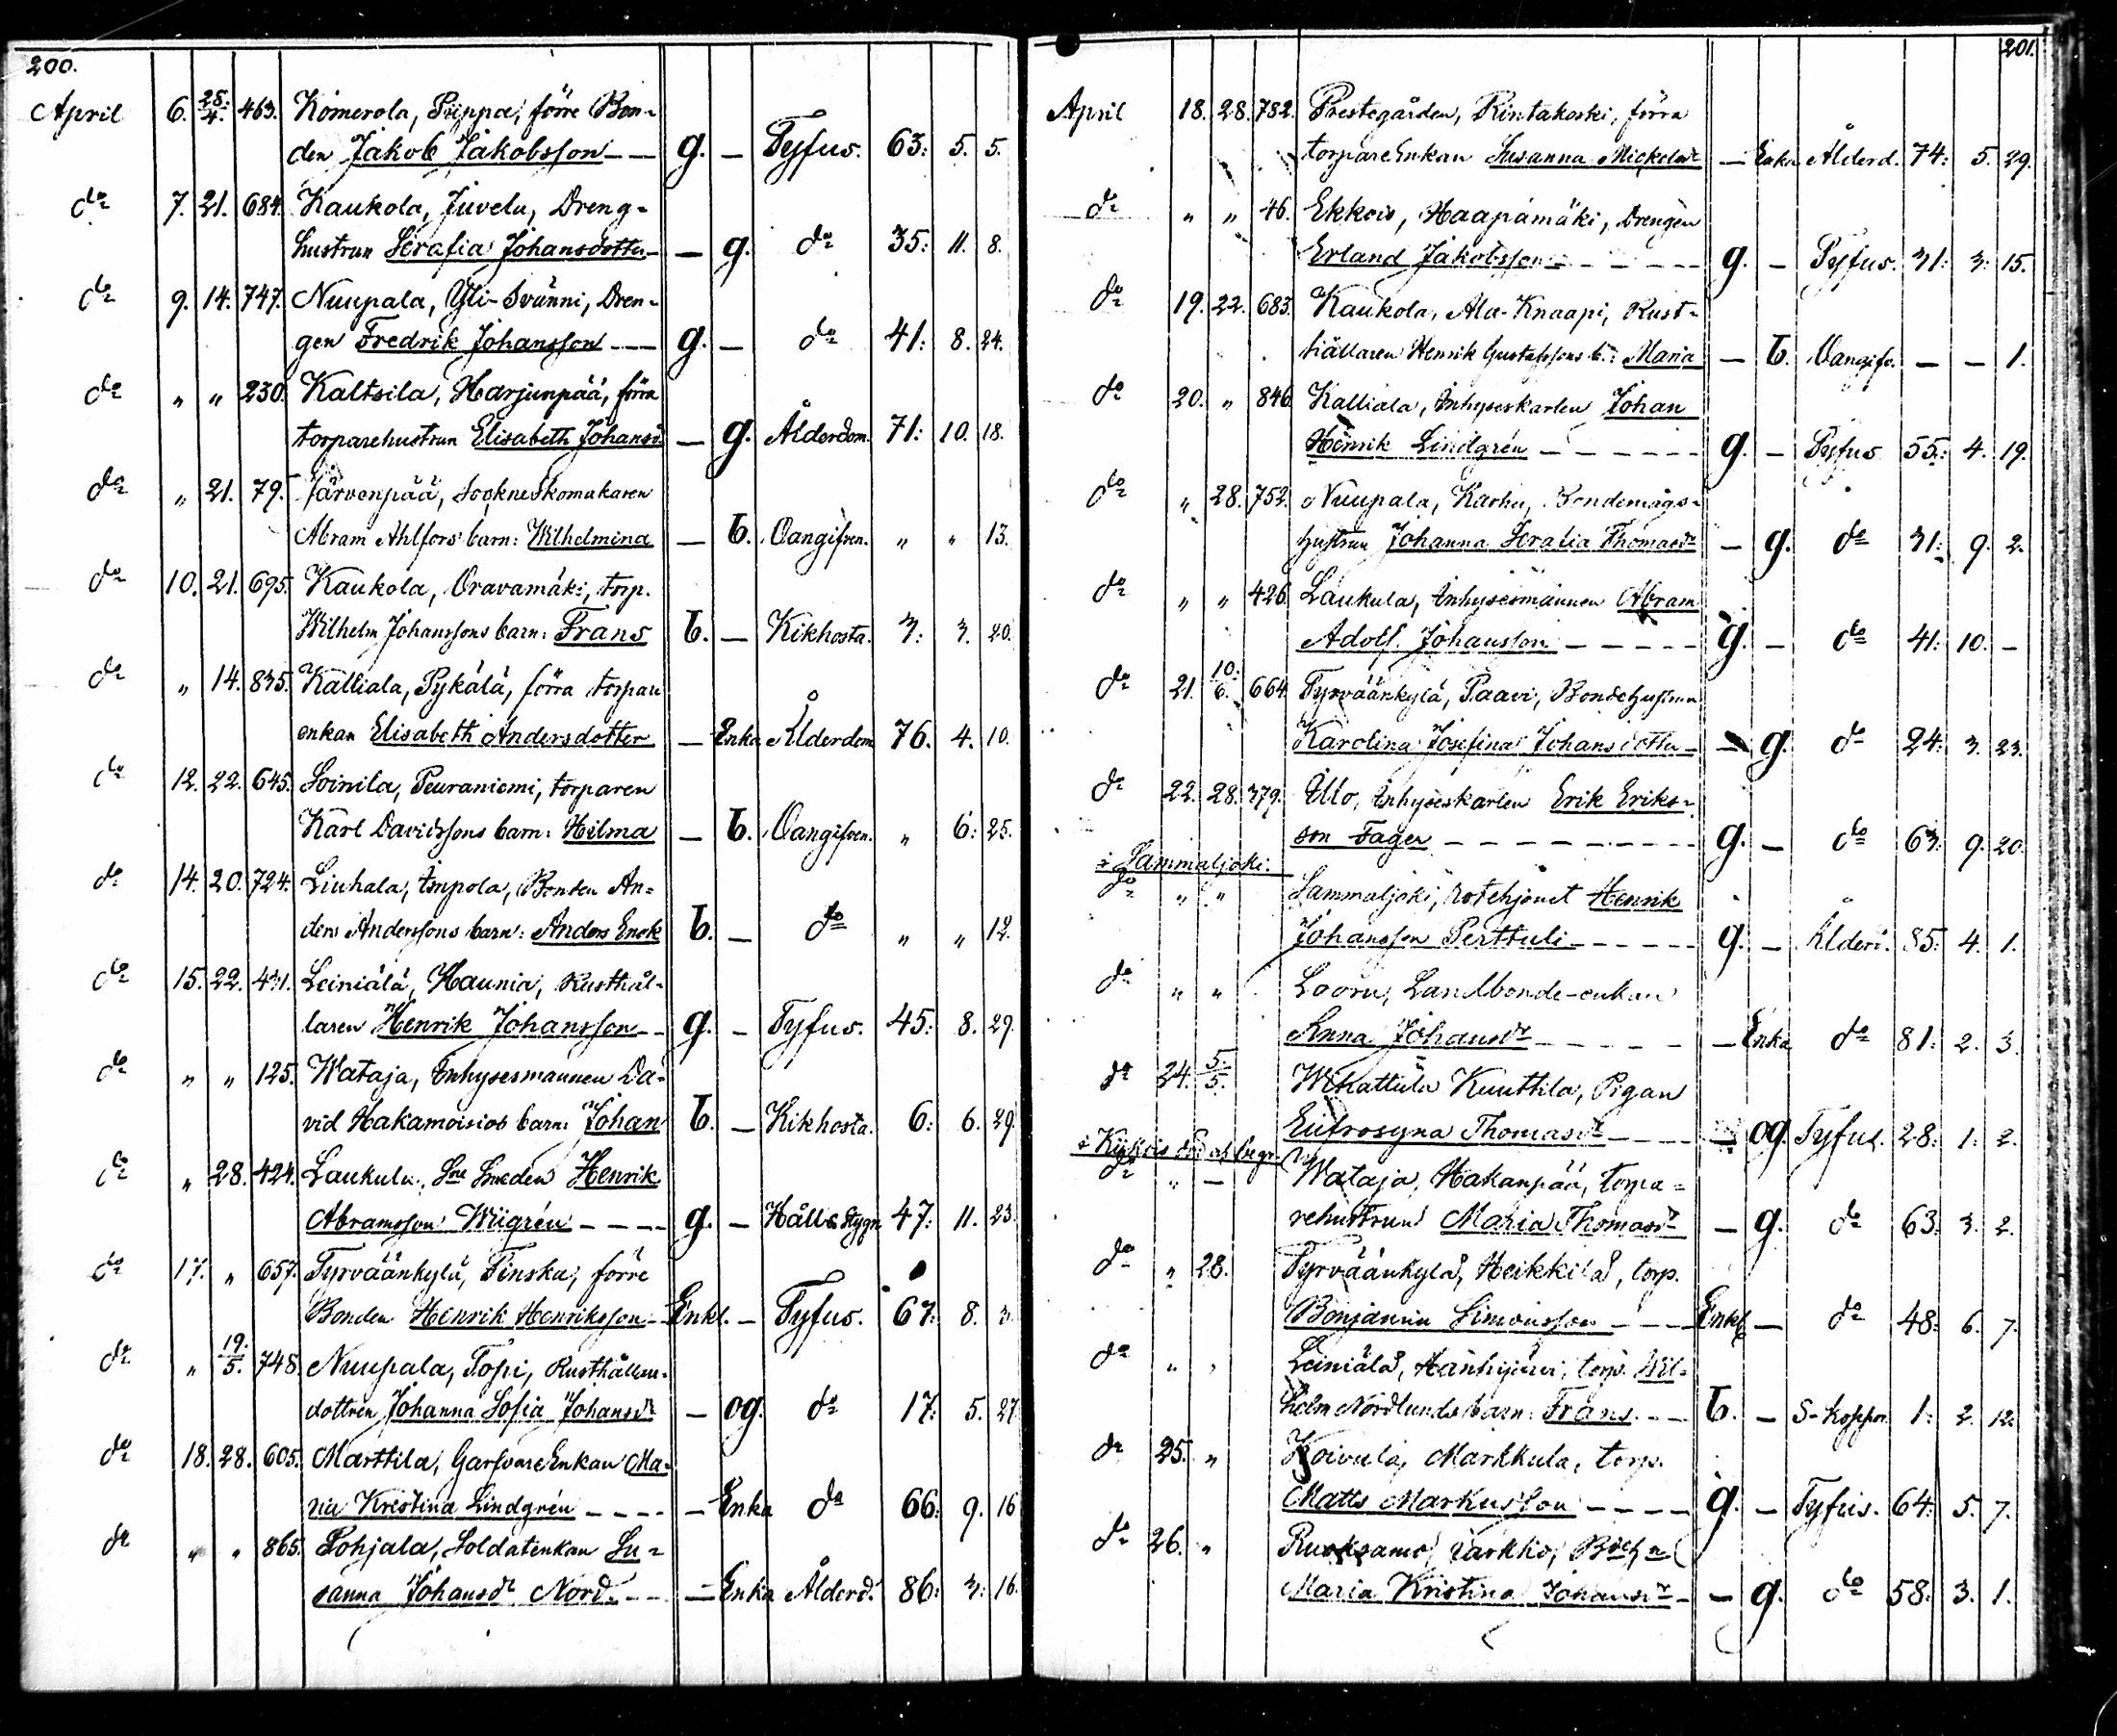 200.
April 6. 28./4. 463. Komerola, Prippa, förre Bon-
den Jakob Jakobsson - - g. - Tyfus. 63: 5. 5.
do 7. 21. 684. Kaukola, Juvela, Dreng-
hustrun Serafia Johansdotter - - g. do 35: 11. 8.
do 9. 14. 747. Nuupala, Yli-Svänni, Dren-
gen Fredrik Johansson - - - g. - do 41: 8. 24.
do " " 230. Kaltsila, Harjunpää, förra
torparehustrun Elisabeth Johansd. - g. Ålderdom. 71: 10. 18.
do " 21. 79. Järvenpää, Sockneskomakaren
Abram Ahlfors barn: Wilhelmina - b. Oangifven. " " 13.
do 10. 21. 695. Kaukola, Oravamäki, torp.
Wilhelm Johanssons barn: Frans b. - Kikhosta. 3: 3. 20.
do " 14. 835. Kalliala, Pykälä, förra torpare
enkan Elisabeth Andersdotter - Enka Ålderdom 76. 4. 10.
do 12. 22. 645. Soinila, Peuraniemi, torparen
Karl Davidssons barn: Hilma - b. Oangifven. " 6: 25.
do 14. 20. 724. Liuhala, Impola, Bonden An-
ders Anderssons barn: Anders Enok b. - do " " 12.
do 15. 22. 431. Leiniälä, Haunia, Rusthål-
laren Henrik Johansson - - g. - Tyfus. 45: 8. 29.
do " " 125. Wataja, Inhysesmannen Da-
vid Hakamoisios barn: Johan b. - Kikhosta. 6: 6. 29.
do " 28. 424. Laukula, Smeden Henrik
Abramsson Wiigrén - - - - g. - Håll & Stygn 47: 11. 23.
do 17. " 657. Tyrväänkylä, Finska, förre
Bonden Henrik Henriksson - Enkl. - Tyfus. 67: 8. 3.
do " 19./5. 748. Nuupala, Topi, Rusthållare-
dottren Johanna Sofia Johansdr - og. do 17: 5. 27.
do 18. 28. 605. Marttila, Garfvare Enkan Ma-
ria Kristina Lindgrén - - - - - Enka do 66: 9. 16
do " " 865. Pohjala, Soldatenkan Su-
sanna Johansdr Nord. - - - Enka Ålderd. 86: 3: 16.
201.
April 18. 28. 782. Prestegården, Rintakoski, förra
torpare Enkan Susanna Mickelsdr - Enka Ålderd. 74: 5. 29.
do " " 46. Ekkois, Haapamäki, Drengen
Erland Jakobsson - - - - - g. - Tyfus. 31: 3: 15.
do 19. 22. 683. Kaukola, Ala-Knaapi, Rust-
hållaren Henrik Gustafssons b.: Maria - b. Oangifv. - - 1.
do 20. " 846. Kalliala, Inhyseskarlen Johan
Henrik Lindgrén - - - - - - g. - Tyfus 55: 4. 19.
do " 28. 752. Nuupala, Karhu, Bondemågs-
hustrun Johanna Seralia Thomasdr - g. do 31: 9. 2.
do " " 426. Laukula, Inhysesmannen Abram
Adolf Johansson - - - - - g. - do 41: 10. -
do 21. 10./6. 664. Tyrväänkylä, Paavi, Bondehustrun
Karolina Josefina Johansdotter - - g. do 24: 3. 23.
do 22. 28. 379. Illo, Inhyseskarlen Erik Eriks-
son Fager - - - - - - - - g. - do 63: 9. 20.
i Sammaljoki.
do " " Sammaljoki, Rotehjonet Henrik
Johansson Perttuli - - - - - g. - Ålderd. 85: 4. 1.
do " " Looru, Landbonde-enkan
Anna Johansdr - - - - - - - Enka do 81: 2. 3.
do 24. 5./5. Wihattula Kuuttila, Pigan
Eufrosyna Thomasdr - - - - og. Tyfus. 28: 1: 2.
i Kiikois död o. begr.
do " - Wataja, Hakanpää, torpa-
rehustrun Maria Thomasdr - g. do 63: 3. 2.
do " 28. Tyrväänkylä, Heikkilä, torp.
Benjamin Simonsson - - - Enkl. - do 48: 6. 7.
do " " Leiniälä, Hanhijärvi, torp. Wil-
helm Nordlunds barn: Frans. - - b. - S-koppor. 1: 2. 12.
do 25. " Koivula, Markkula, torp.
Matts Markusson - - - - g. - Tyfus. 64: 5. 7.
do 26. " Ruoksamo, Varkko,
Maria Kristina Johansdr - - g. do 58: 3. 1.